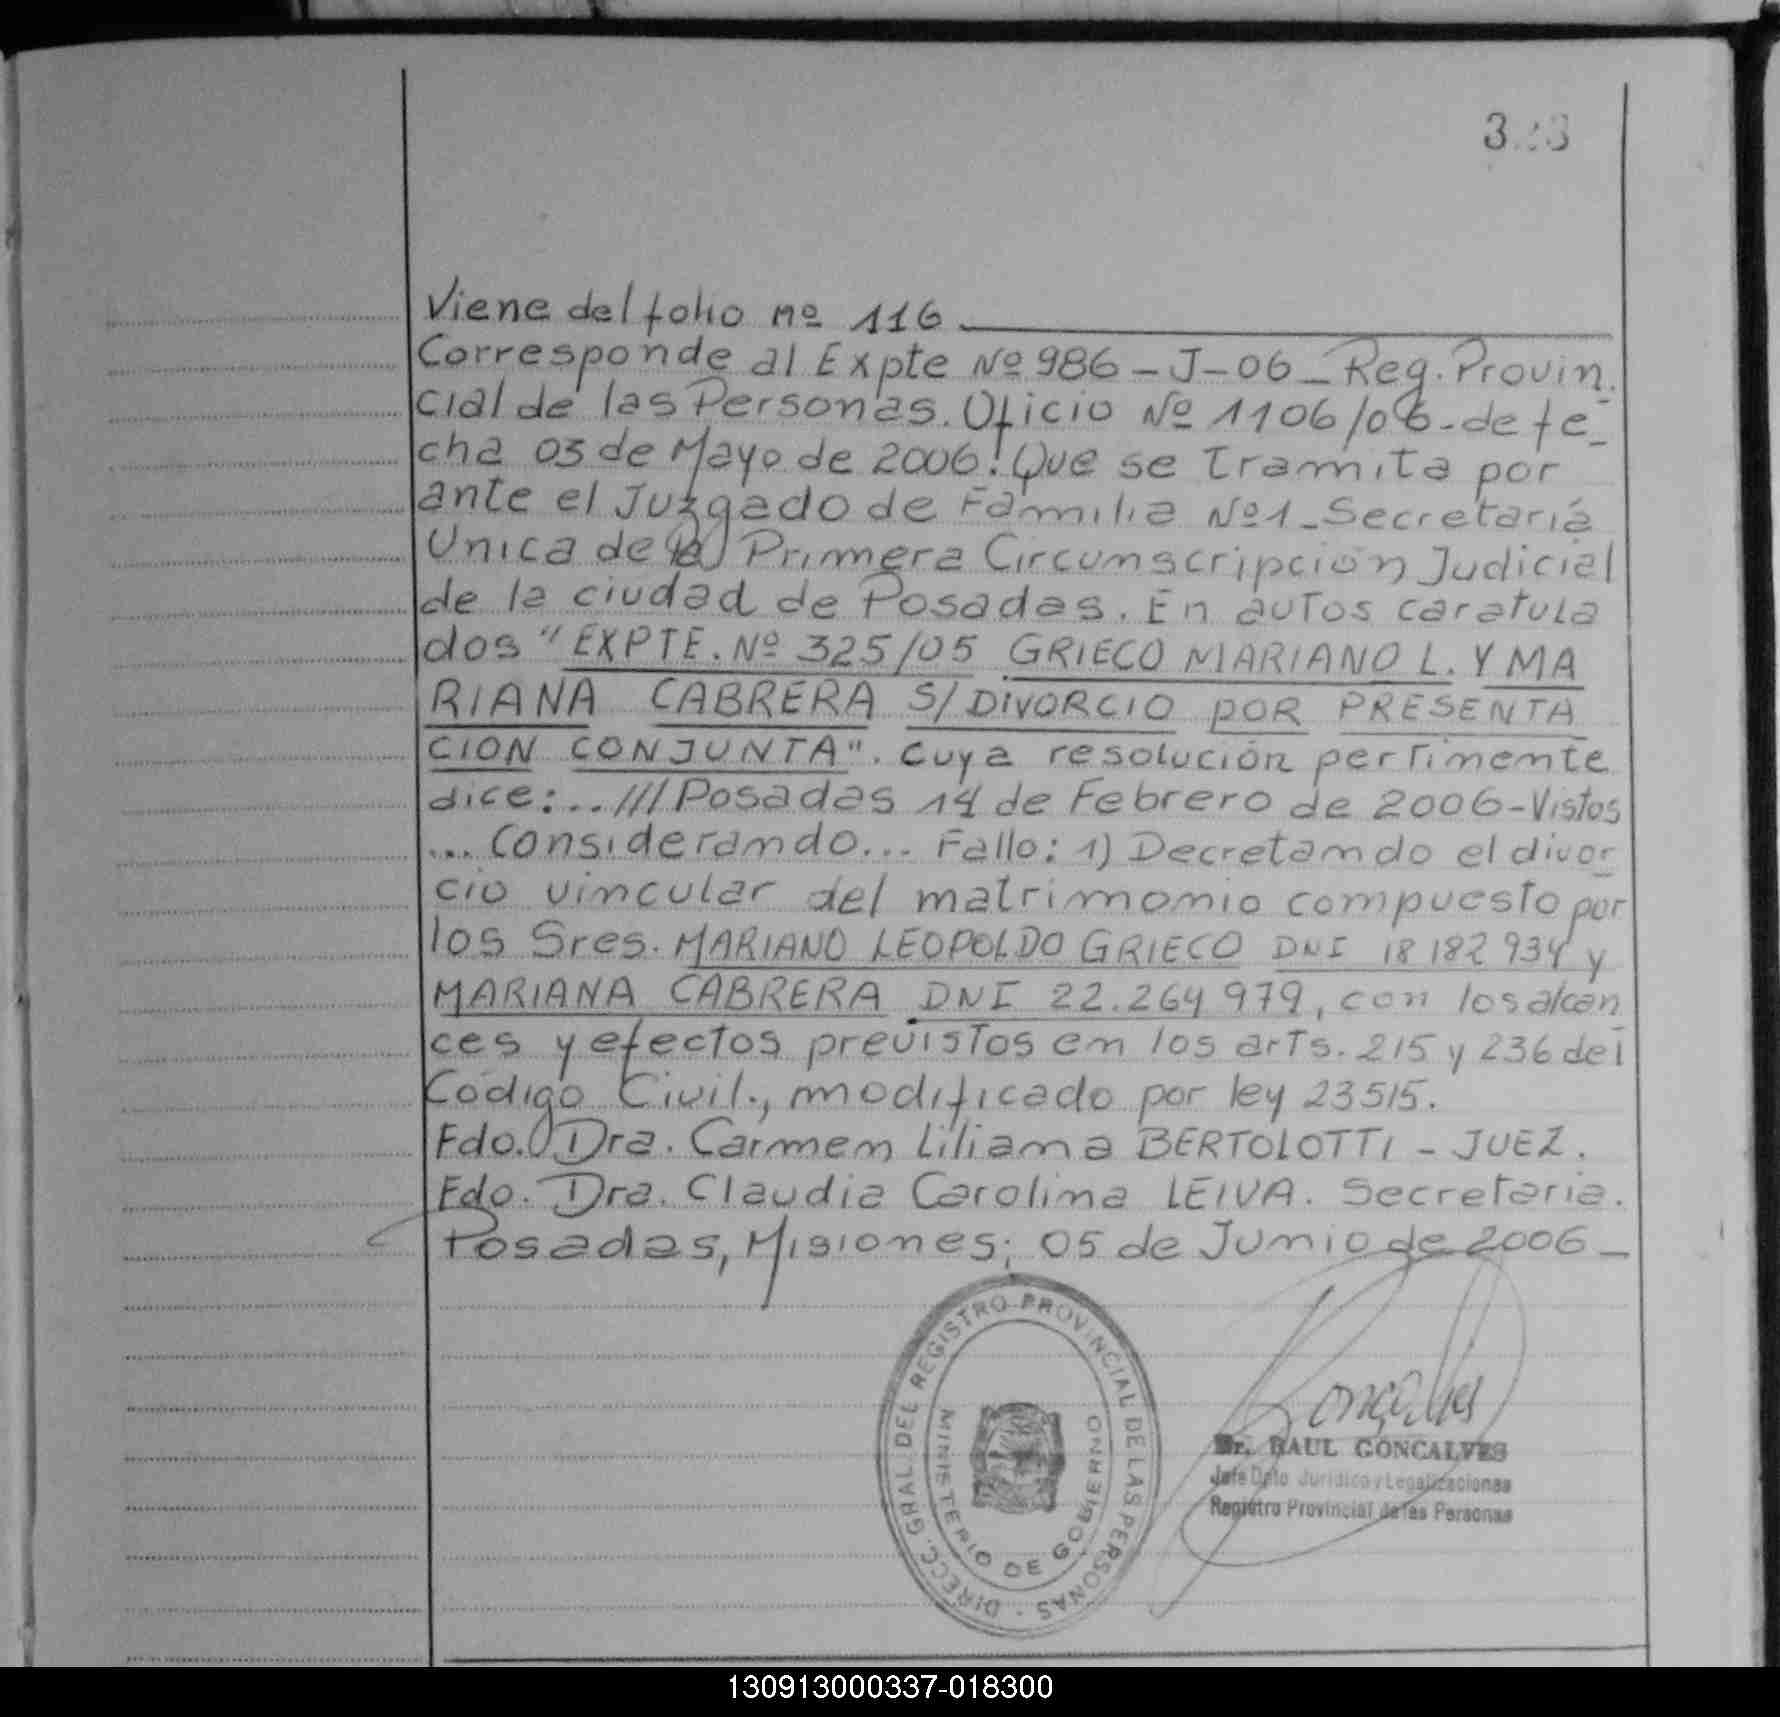 Viene del folio nº 116
Corresponde al Expte Nº 986-J-06-Reg. Provin
cial de las Personas. Oficio Nº 1106/06-de fe_
cha 03 de Mayo de 2006. Que se tramita por
ante el Juzgado de Familia Nº1-Secretaría
Unica de la Primera Circunscripción Judicial
de la ciudad de Posadas. En autos caratula
dos "EXPTE. Nº 325/05 GRIECO MARIANO L. Y MA
RIANA CABRERA S/DIVORCIO POR PRESENTA
CION CONJUNTA". Cuya resolución pertinente
dice:..///Posadas 14 de Febrero de 2006-Vistos
... Considerando... Fallo: 1) Decretando el divor
cio vincular del matrimonio compuesto por
los Sres. MARIANO LEOPOLDO GRIECO DNI 18 182 934 y
MARIANA CABRERA DNI 22.264 979, con los alcan
ces y efectos previstos en los arts. 215 y 236 del
Código Civil., modificado por ley 23515.
Fdo. Dra. Carmen Liliana BERTOLOTTI - JUEZ.
Fdo. Dra. Claudia Carolina LEIVA. Secretaria.
Posadas, Misiones; 05 de Junio de 2006_
DIRECC. GRAL. DEL REGISTRO PROVINCIAL DE LAS PERSONAS
MINISTERIO DE GOBIERNO
Dr. RAUL GONCALVES
Jefe Dpto Jurídico y Legalizaciones
Registro Provincial de las Personas
130913000337-018300